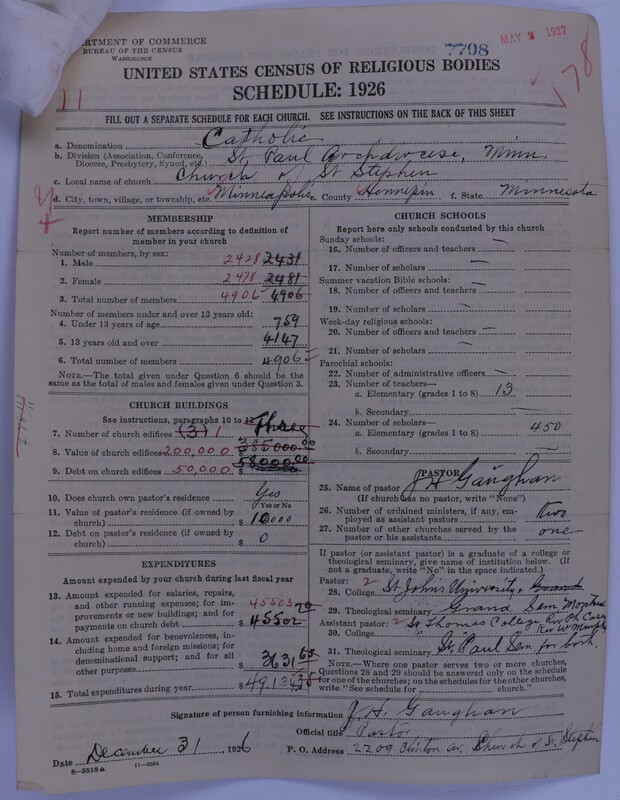 RTMENT OF COMMERCE
BUREAU OF THE CENSUS
WASHINGTON
7798
MAY 2 1927
178
11
UNITED STATES CENSUS OF RELIGIOUS BODIES
SCHEDULE: 1926
FILL OUT A SEPARATE SCHEDULE FOR EACH CHURCH. SEE INSTRUCTIONS ON THE BACK OF THIS SHEET
a. Denomination Catholic
b. Division (Association, Conference, Diocese, Presbytery, Synod, etc.) St Paul Archdiocese, Minn.
c. Local name of church Church of St Stephen
d. City, town, village, or township, etc. Minneapolis e. County Hennepin f. State Minnesota
MEMBERSHIP
Report number of members according to definition of
member in your church
Number of members, by sex:
1. Male 2428 2431
2. Female 2478 2481
3. Total number of members 4906 4906
Number of members under and over 13 years old:
4. Under 13 years of age 759
5. 13 years old and over 4147
6. Total number of members 4906
NOTE.—The total given under Question 6 should be
the same as the total of males and females given under Question 3.
CHURCH BUILDINGS
See instructions, paragraphs 10 to
7. Number of church edifices (3) 1 Three
8. Value of church edifices 200,000 385000.00
9. Debt on church edifices 50,000 $ 58000.00
10. Does church own pastor's residence Yes
Yes or No
11. Value of pastor's residence (if owned by
church) $ 10000
12. Debt on pastor's residence (if owned by
church) $ 0
EXPENDITURES
Amount expended by your church during last fiscal year
13. Amount expended for salaries, repairs,
and other running expenses; for im-
provements or new buildings; and for
payments on church debt 45503 $ 45502.70
14. Amount expended for benevolences, in-
cluding home and foreign missions; for
denominational support; and for all
other purposes 3631.65
15. Total expenditures during year $ 49.134.35
CHURCH SCHOOLS
Report here only schools conducted by this church
Sunday schools:
16. Number of officers and teachers —
17. Number of scholars —
Summer vacation Bible schools:
18. Number of officers and teachers —
19. Number of scholars —
Week-day religious schools:
20. Number of officers and teachers —
21. Number of scholars —
Parochial schools:
22. Number of administrative officers —
23. Number of teachers—
a. Elementary (grades 1 to 8) 13
b. Secondary —
24. Number of scholars—
a. Elementary (grades 1 to 8) 450
b. Secondary —
PASTOR
25. Name of pastor J H Gaughan
(If church has no pastor, write "None")
26. Number of ordained ministers, if any, em-
ployed as assistant pastors two
27. Number of other churches served by the
pastor or his assistants one
If pastor (or assistant pastor) is a graduate of a college or
theological seminary, give name of institution below. (If
not a graduate, write "No" in the space indicated.)
Pastor: 2
28. College St Johns University, Grand
29. Theological seminary Grand Sem Montreal
Assistant pastor: 2
30. College St Thomas College Rev Ph Casey
Rev
31. Theological seminary St. Paul Sem for both
NOTE.—Where one pastor serves two or more churches,
Questions 28 and 29 should be answered only on the schedule
for one of the churches; on the schedules for the other churches,
write "See schedule for church."
Signature of person furnishing information J. H. Gaughan
Official title Pastor
Date December 31, 1926 P. O. Address 2209 Clinton av. Church of St. Stephen
8-5518 a 11-9084